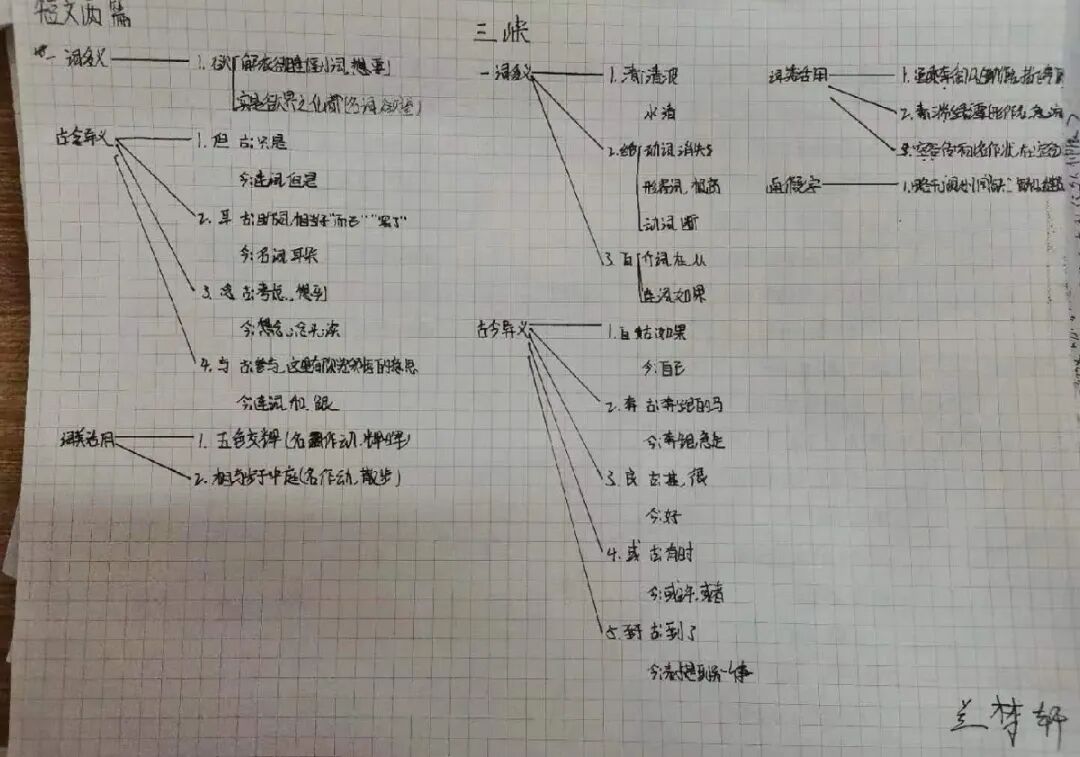 短文两篇
一词多义
1. 欲 解衣欲睡 动词,想要
实是欲界之仙都(名词,欲望)
古今异义
1. 但 古:只是
今:连词 但是
2. 耳 古:助词,相当于"而已""罢了"
今:名词 耳朵
3. 念 古:考虑,想到
今:想念
4. 与 古:参与,这里有欣赏领悟的意思
今:连词 和、跟
词类活用
1. 五色交辉(名作动,辉映)
2. 相与步于中庭(名作动,散步)
三峡
一词多义
1. 清 清波
水清
2. 绝 动词 消失
形容词,极高
动词 断
3. 自 介词 在,从
连词 如果
古今异义
1. 自 古:如果
今:自己
2. 奔 古:奔跑的马
今:奔跑,急走
3. 良 古:甚,很
今:好
4. 或 古:有时
今:或许,或者
5. 至于 古:到了
今:表提到另一件事
词类活用
1. 虽乘奔御风
2.
3. 空谷传响
通假字
1. 略无阙处
兰梦轩